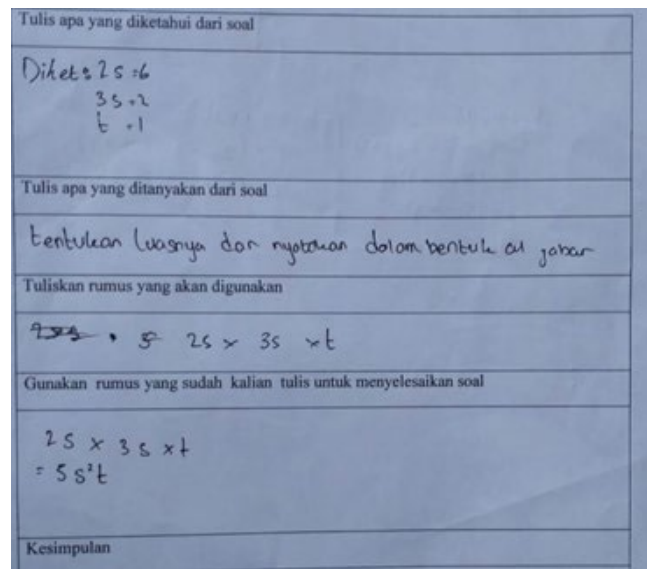 Tulis apa yang diketahui dari soal
Diket : 2s = 6
3s = 2
t = 1
Tulis apa yang ditanyakan dari soal
tentukan luasnya dan nyatakan dalam bentuk al jabar
Tuliskan rumus yang akan digunakan
2s x 3s x t
Gunakan rumus yang sudah kalian tulis untuk menyelesaikan soal
2s x 3s x t
= 5s²t
Kesimpulan